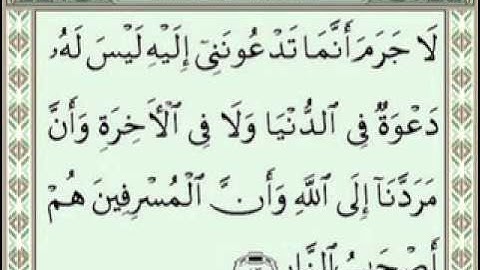 لَا جَرَمَ أَنَّمَا تَدْعُونَنِيٓ إِلَيْهِ لَيْسَ لَهُۥ
دَعْوَةٌ فِي ٱلدُّنْيَا وَلَا فِي ٱلْأَخِرَةِ وَأَنَّ
مَرَدَّنَآ إِلَى ٱللَّهِ وَأَنَّ ٱلْمُسْرِفِينَ هُمْ
أَصْحَٰبُ ٱلنَّارِ